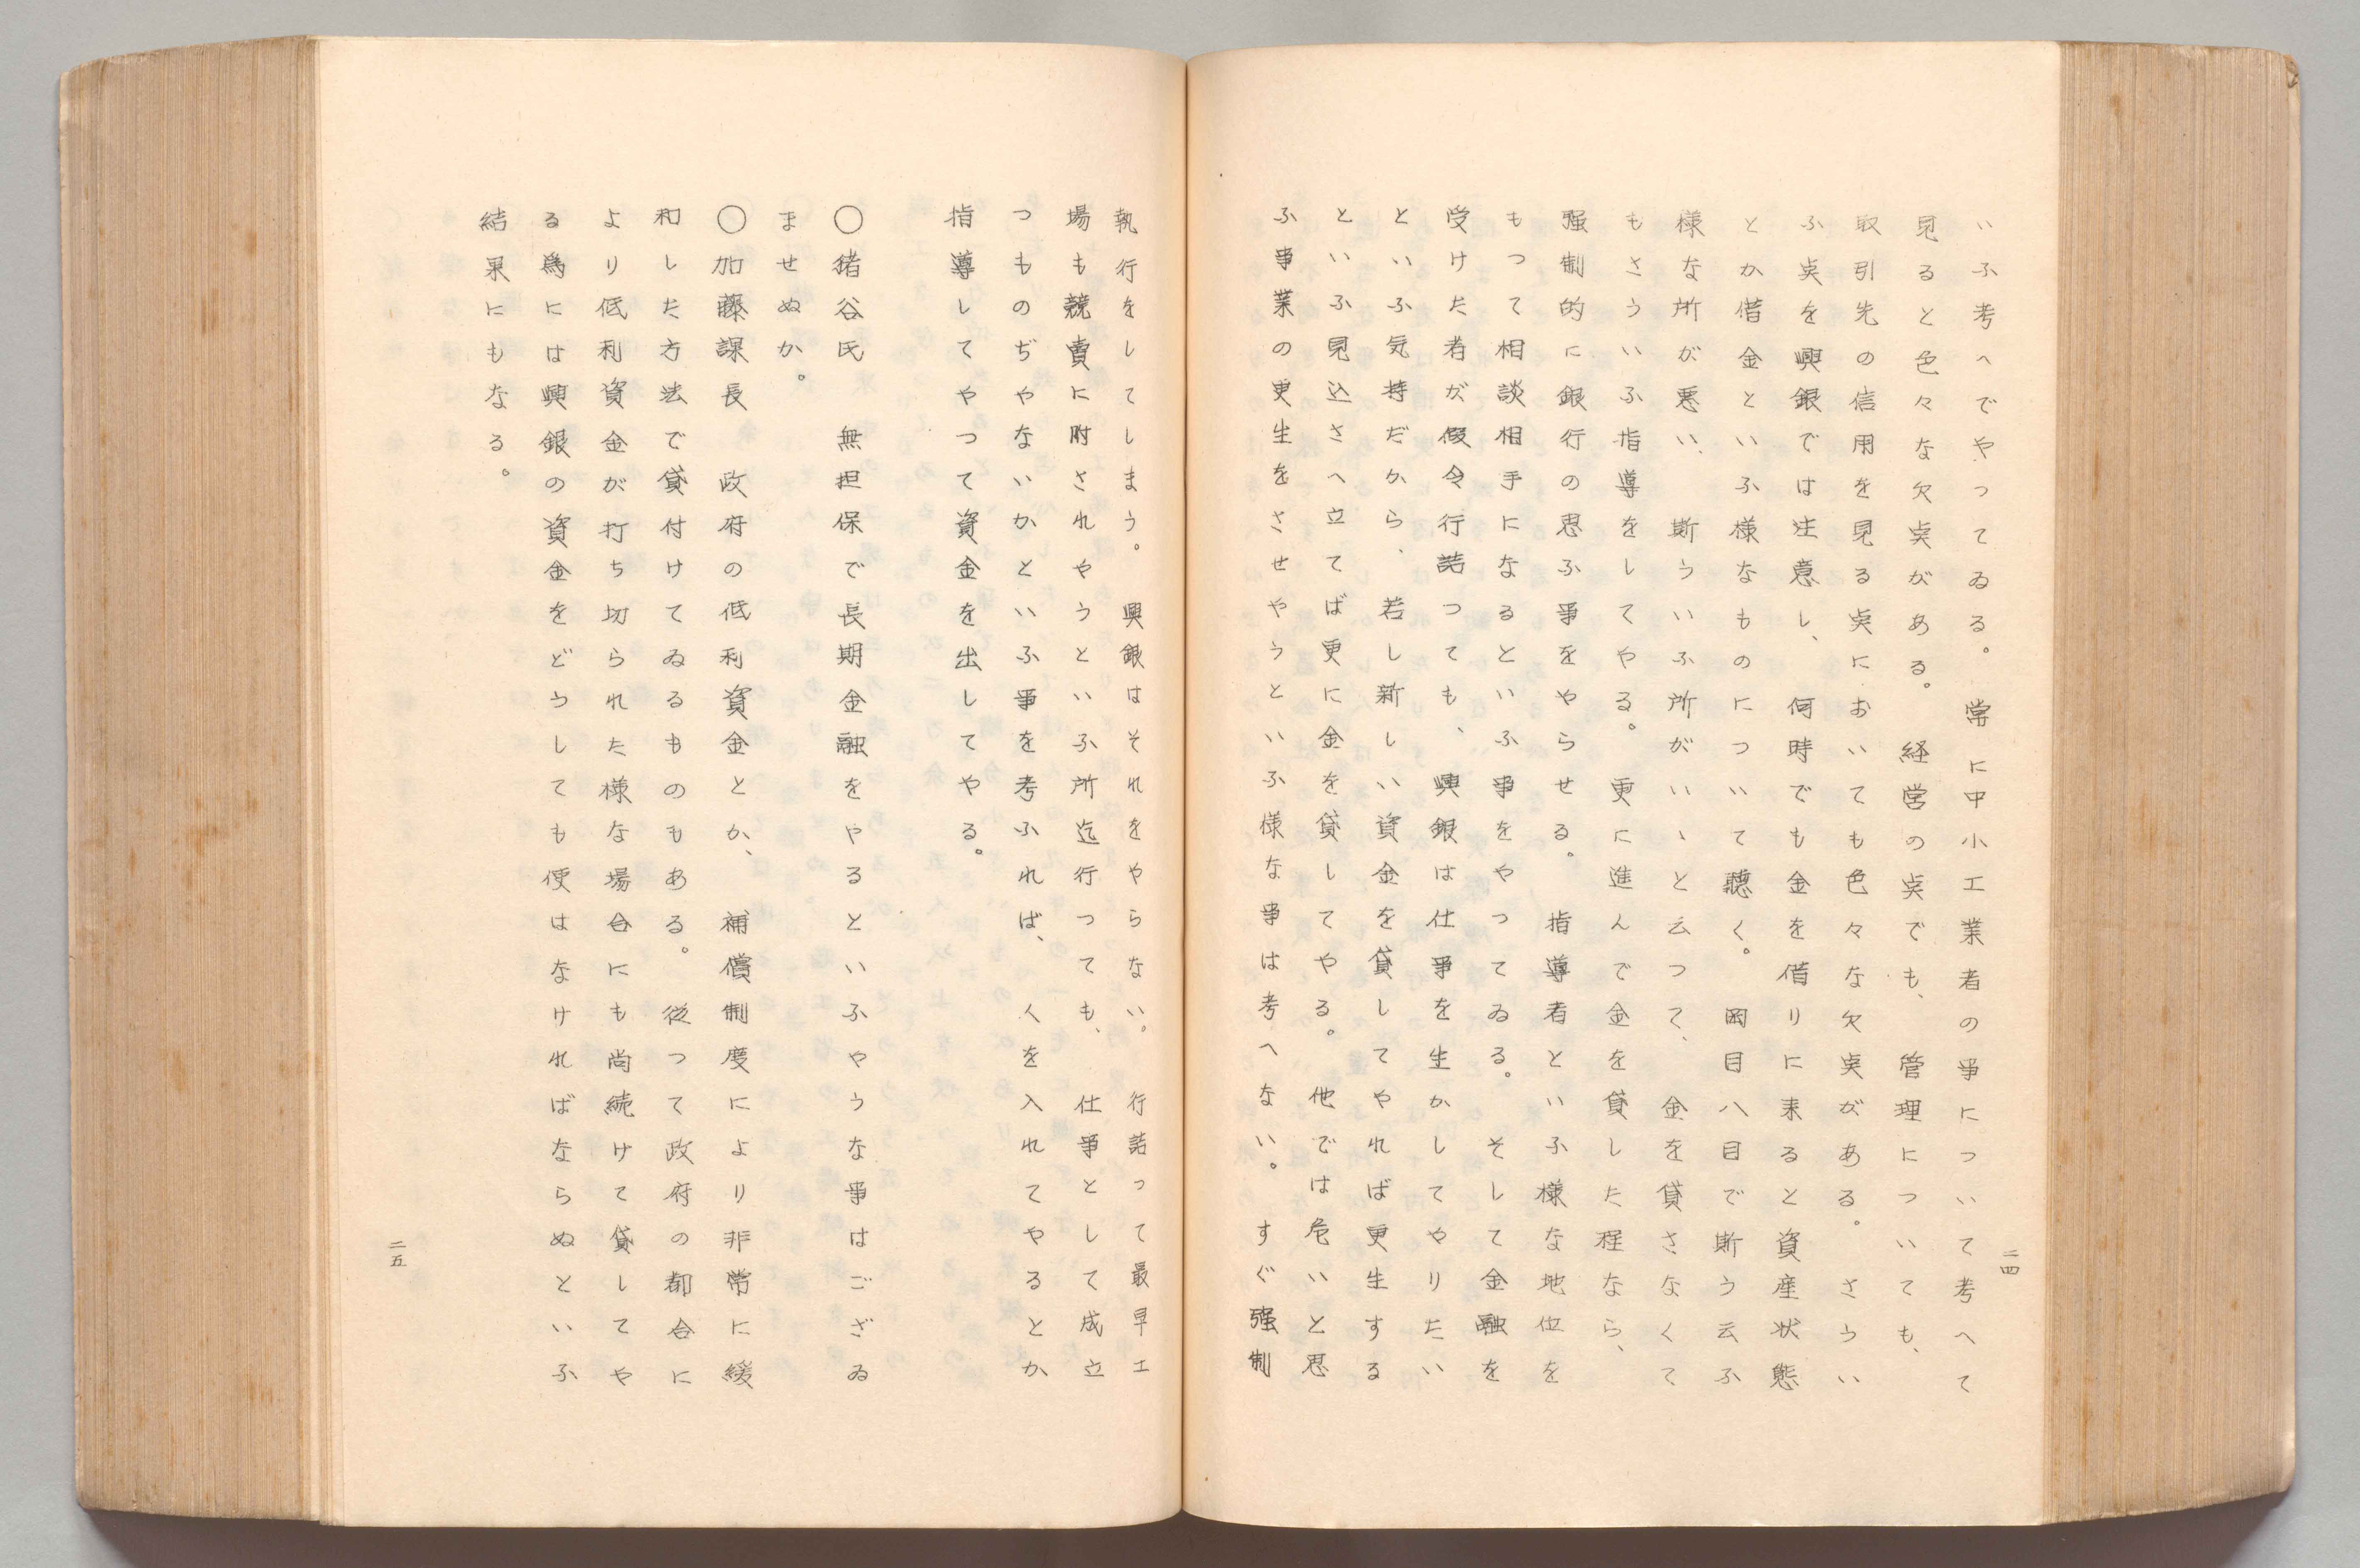 二四
いふ考へでやってゐる。常に中小工業者の事について考へて
見ると色々な欠点がある。経営の点でも、管理についても、
取引先の信用を見る点においても色々な欠点がある。さうい
ふ点を興銀では注意し、何時でも金を借りに来ると資産状態
とか借金といふ様なものについて聴く。岡目八目で斯う云ふ
様な所が悪い、斯ういふ所がいゝと云つて、金を貸さなくて
もさういふ指導をしてやる。更に進んで金を貸した程なら、
强制的に銀行の思ふ事をやらせる。指導者といふ様な地位を
もつて相談相手になるといふ事をやつてゐる。そして金融を
受けた者が假令行詰つても、興銀は仕事を生かしてやりたい
といふ気持だから、若し新しい資金を貸してやれば更生する
といふ見込さへ立てば更に金を貸してやる。他では危いと思
ふ事業の更生をさせやうといふ様な事は考へない。すぐ强制
執行をしてしまう。興銀はそれをやらない。行詰って最早工
場も競賣に附されやうといふ所迄行つても、仕事として成立
つものぢやないかといふ事を考ふれば、人を入れてやるとか
指導してやつて資金を出してやる。
〇猪谷氏　無担保で長期金融をやるといふやうな事はござゐ
ませぬか。
〇加藤課長　政府の低利資金とか、補償制度により非常に緩
和した方法で貸付けてゐるものもある。従つて政府の都合に
より低利資金が打ち切られた様な場合にも尚続けて貸してや
る為には興銀の資金をどうしても使はなければならぬといふ
結果にもなる。
二五